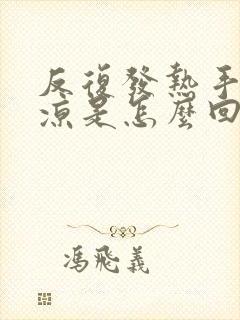 反復發熱手
涼是怎麼回
馮飛義